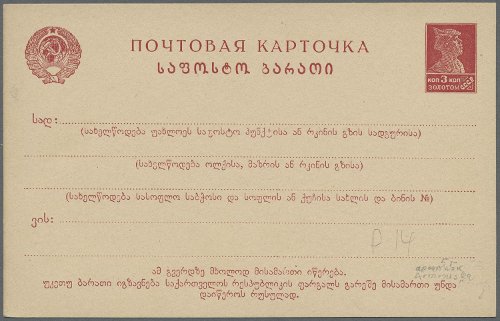 ПОЧТОВАЯ КАРТОЧКА
ᲡᲐᲤᲝᲡᲢᲝ ᲑᲐᲠᲐᲗᲘ
КОП 3 КОП
ЗОЛОТОМ
სად:
(სახელწოდება უახლოეს საფოსტო პუნქტისა ან რკინის გზის სადგურისა)
(სახელწოდება ოლქისა, მაზრის ან რკინის გზისა)
(სახელწოდება სასოფლო საბჭოსი და სოფლის ან ქუჩისა სახლის და ბინის №)
ვის:
D 14
ამ გვერდზე მხოლოდ მისამართი იწერება.
უკეთუ ბარათი იგზავნება საქართველოს რესპუბლიკის ფარგალს გარეშე მისამართი უნდა
დაიწეროს რუსულად.